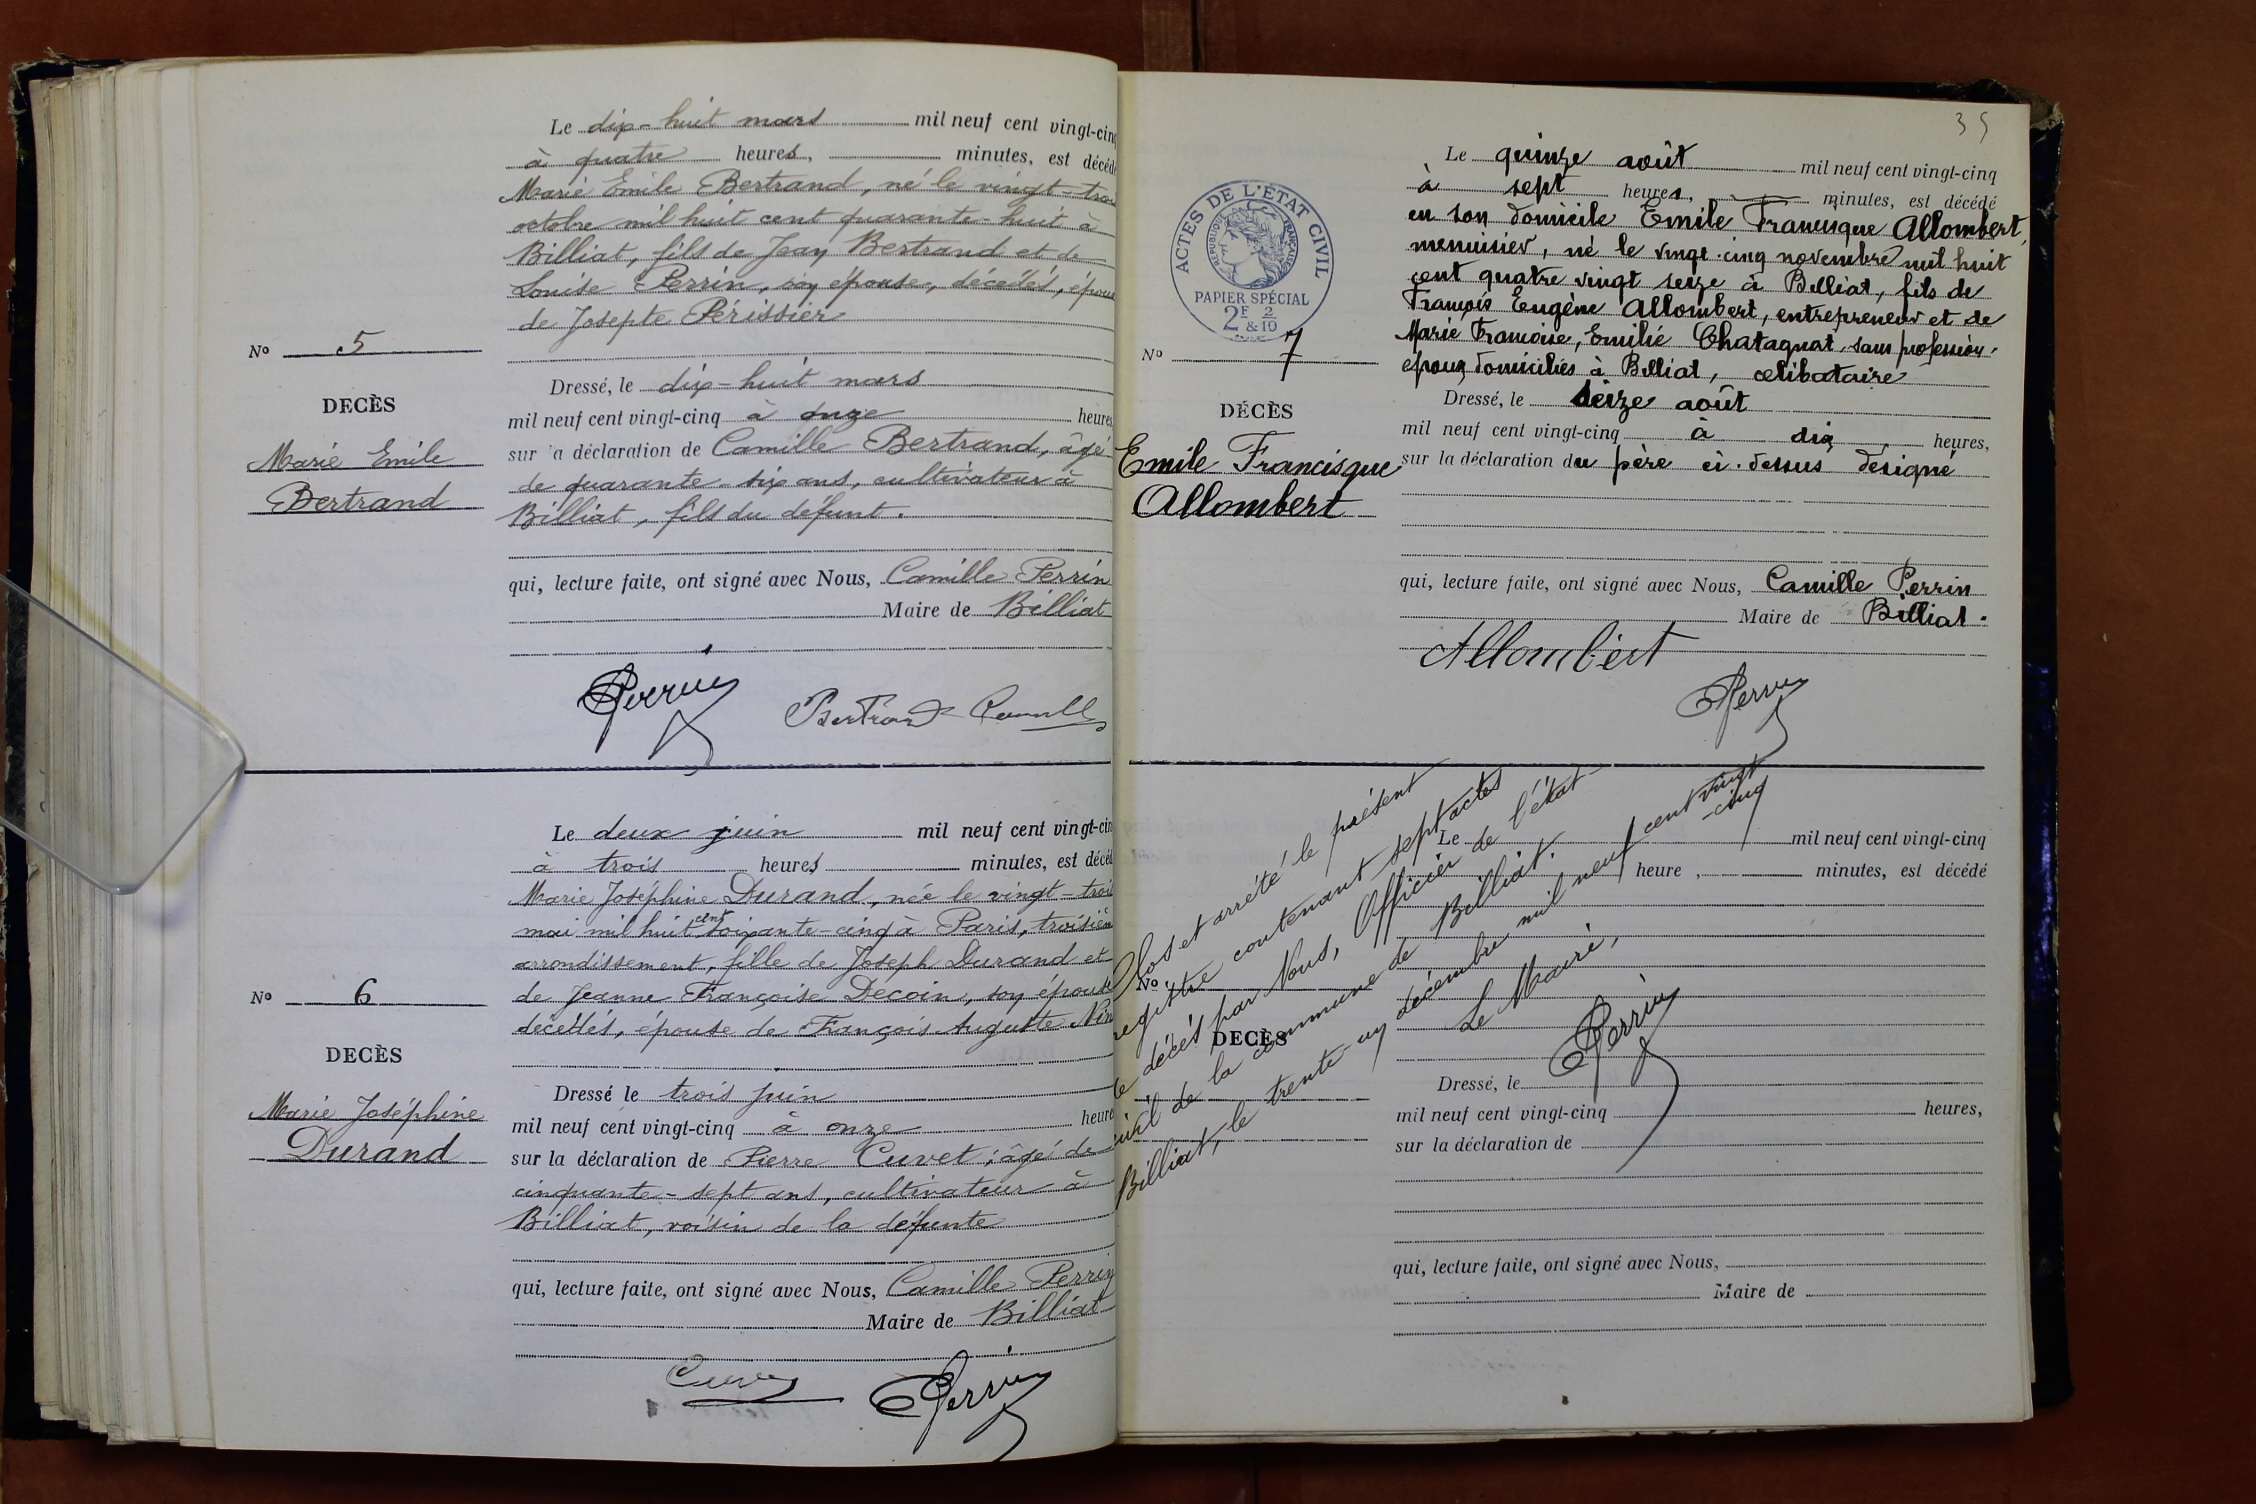 Le dix-huit mars mil neuf cent vingt-cinq
à quatre heures, minutes, est décédé
Marie Emile Bertrand, né le vingt-trois
octobre mil huit cent quarante-huit à
Billiat, fils de Jean Bertrand et de
Louise Perrin, son épouse, décédés, époux
de Josepte Périssier
No 5
DECÈS
Marie Emile
Bertrand
Dressé, le dix-huit mars
mil neuf cent vingt-cinq à onze heures
sur la déclaration de Camille Bertrand, âgé
de quarante-six ans, cultivateur à
Billiat, fils du défunt.
qui, lecture faite, ont signé avec Nous, Camille Perrin
Maire de Billiat
Perrin
Bertrand Camille
Le deux juin mil neuf cent vingt-cin
à trois heures minutes, est décéd
Marie Joséphine Durand, née le vingt-trois
mai mil huit cent soixante-cinq à Paris, troisièm
arrondissement, fille de Joseph Durand et
de Jeanne Françoise Décoin, son épouse
décédés, épouse de François Auguste
No 6
DECÈS
Marie Joséphine
Durand
Dressé le trois juin
mil neuf cent vingt-cinq à onze heure
sur la déclaration de Pierre Cuvet, âgé de
cinquante-sept ans, cultivateur à
Billiat, voisin de la défunte
qui, lecture faite, ont signé avec Nous, Camille Perrin
Maire de Billiat
Cuvet
Perrin
35
ACTES DE L'ÉTAT CIVIL
RÉPUBLIQUE FRANÇAISE
PAPIER SPÉCIAL
2F & 2/10
Le quinze août mil neuf cent vingt-cinq
à sept heures, minutes, est décédé
en son domicile Emile Francisque Allombert,
menuisier, né le vingt-cinq novembre mil huit
cent quatre vingt seize à Billiat, fils de
François Eugène Allombert, entrepreneur et de
Marie Francoise, Emilie Chatagnat, sans profession,
époux domiciliés à Billiat, célibataire
No 7
DÉCÈS
Emile Francisque
Allombert
Dressé, le seize août
mil neuf cent vingt-cinq à dix heures,
sur la déclaration du père ci-dessus désigné
qui, lecture faite, ont signé avec Nous, Camille Perrin
Maire de Billiat.
Allombert
Perrin
Clos et arrêté le présent
registre contenant sept actes
de décès par Nous, Officier de l'état
civil de la commune de Billiat.
Billiat, le trente un décembre mil neuf cent vingt
-cinq
Le Maire,
Perrin
Le mil neuf cent vingt-cinq
heure, minutes, est décédé
No
DECÈS
Dressé, le
mil neuf cent vingt-cinq heures,
sur la déclaration de
qui, lecture faite, ont signé avec Nous,
Maire de